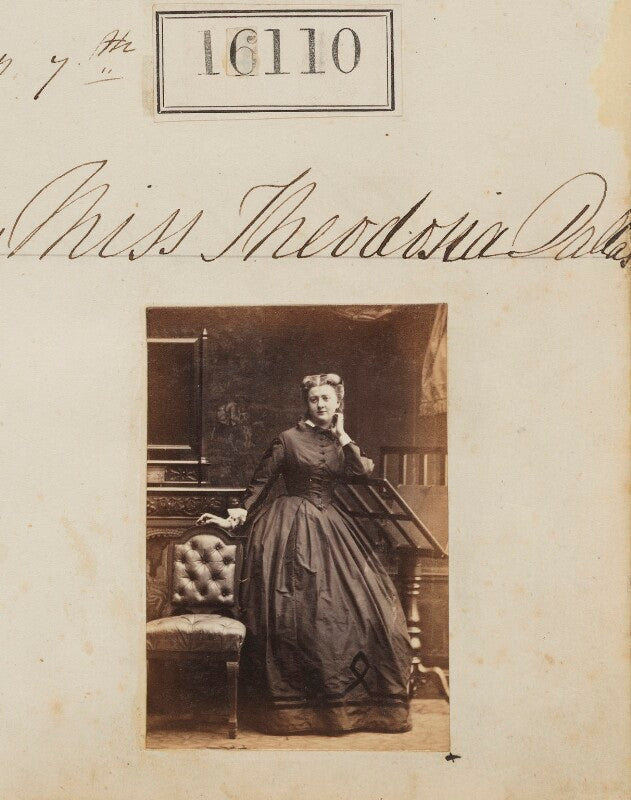 7th
16110
Miss Theodosia Dallas